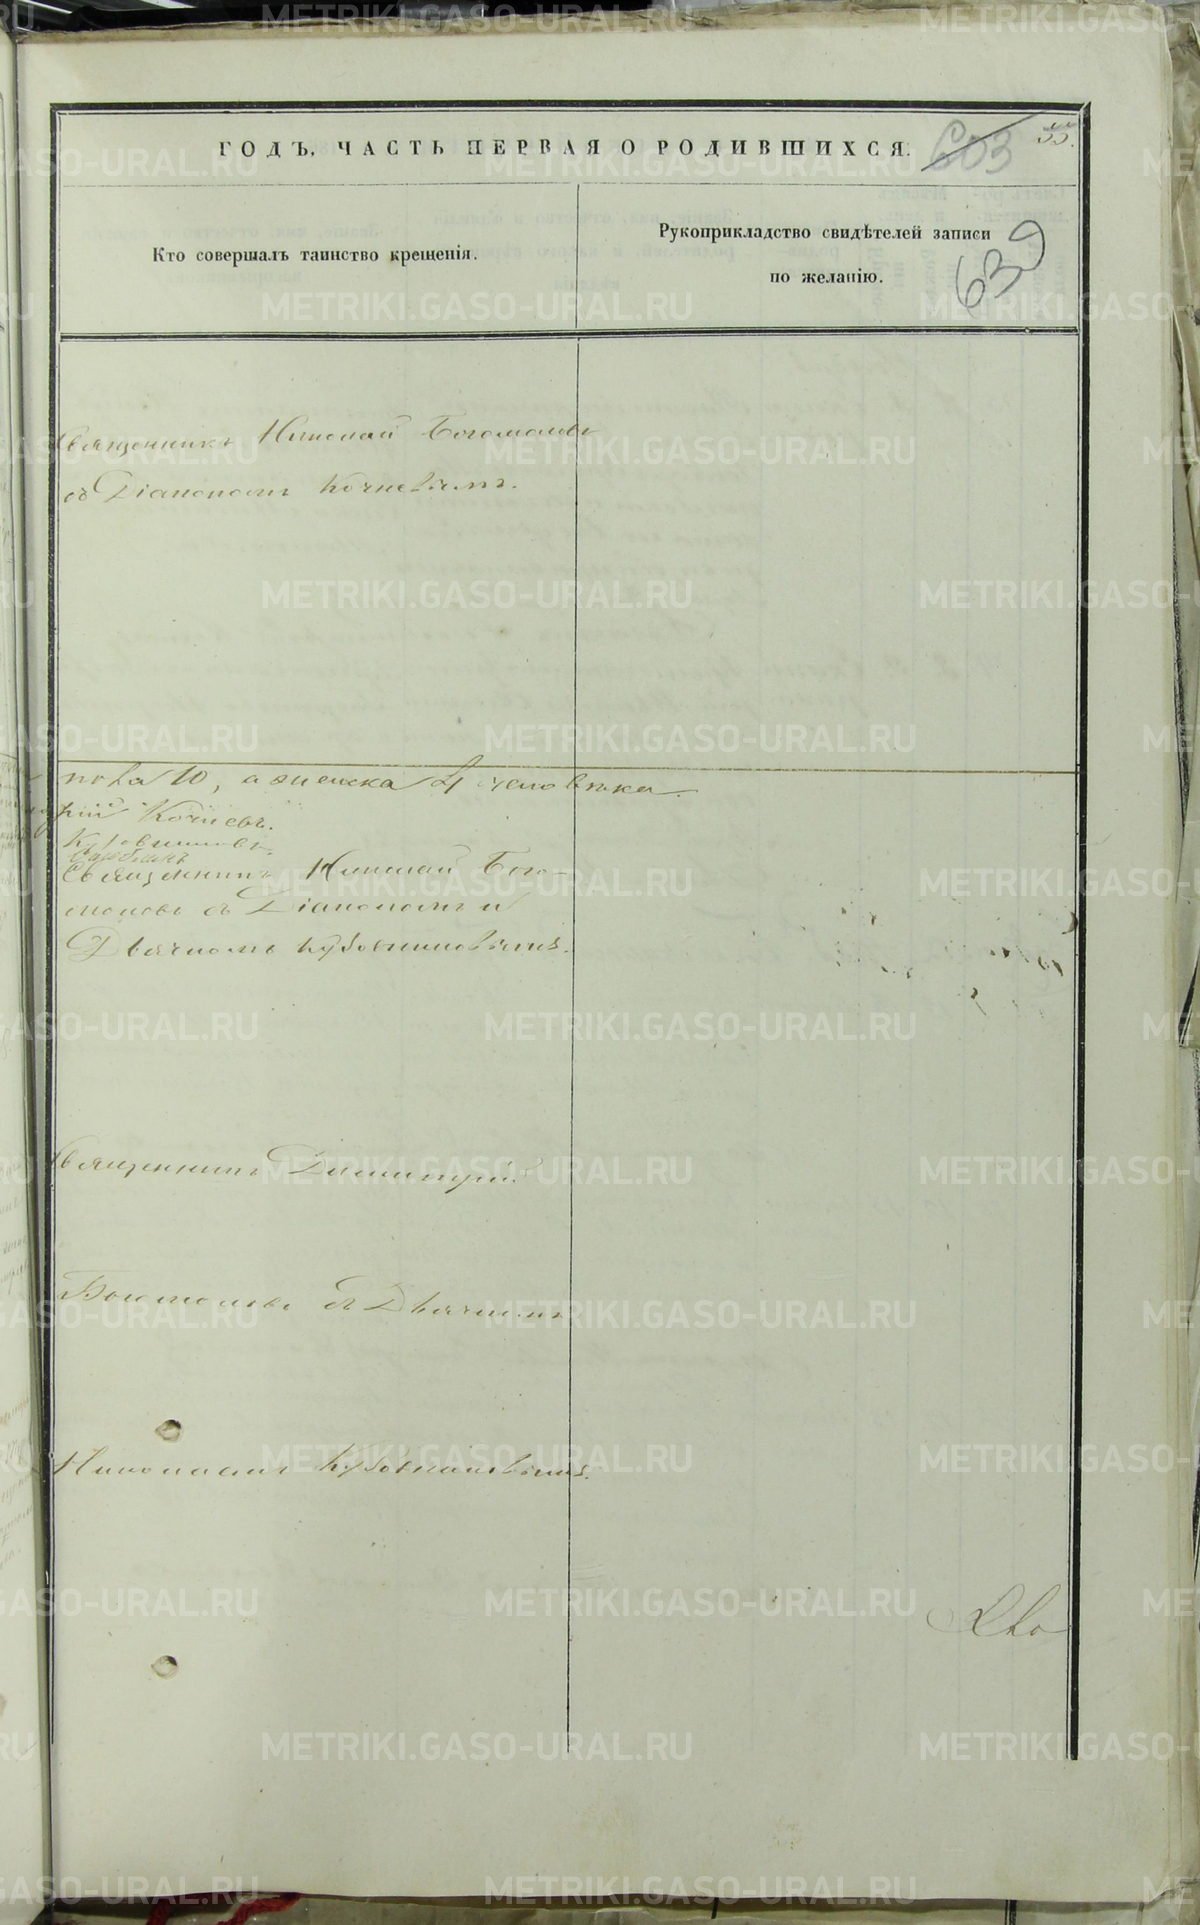 ГОДЪ, ЧАСТЬ ПЕРВАЯ О РОДИВШИХСЯ.
603
55.
Кто совершалъ таинство крещенія.
Рукоприкладство свидѣтелей записи
по желанію.
639
Священникъ Николай Богомоловъ
съ Діакономъ
пола 10, а женска 4 человѣка.
Священникъ Николай Бого-
моловъ съ Діакономъ и
Дьячкомъ Кубовниковымъ.
Священникъ Димитрій
Богомоловъ съ Дьячкомъ
Николаемъ Кубовниковымъ.
METRIKI.GASO-URAL.RU